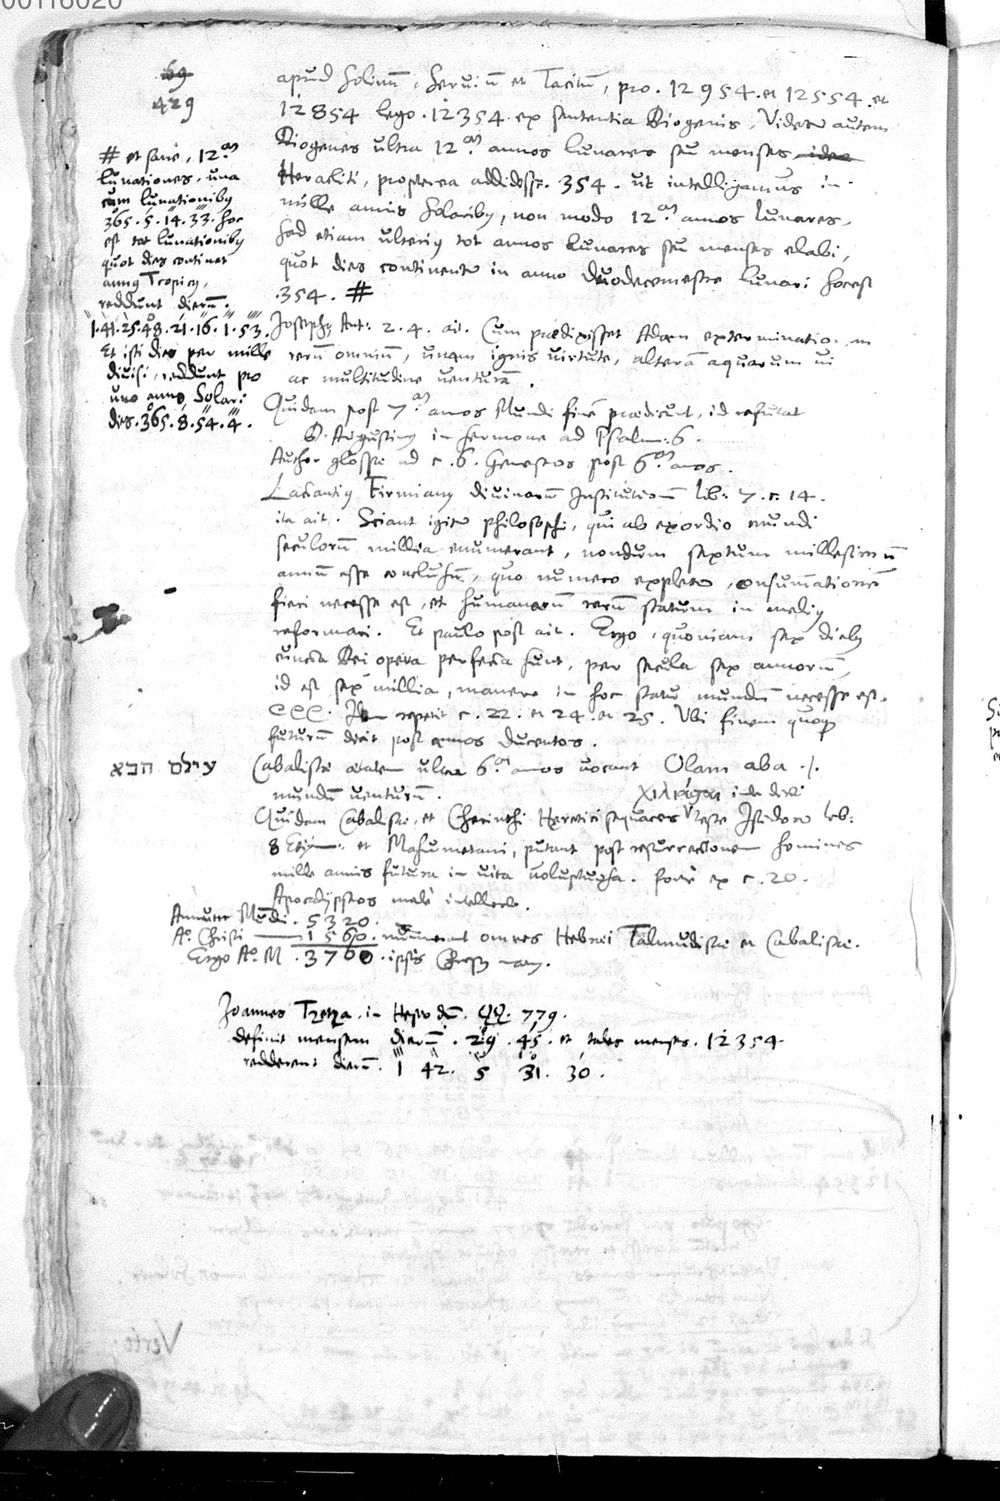 00116020
69
429
apud Solinū, Seruiū et Tacitū, pro. 12954. et 12554. et
12854 lego. 12354. ex sententia Diogenis. Videtur autem
Diogenes ultra 12.m annos lunares seu menses idea
Heracliti, propterea addidisse. 354. ut intelligamus in
mille annis solaribus, non modo 12.m annos lunares,
sed etiam ulterius tot annos lunares seu menses elabi,
quot dies continentur in anno duodecimestre lunari hoc est
.354. #
# et sanè, 12.m
lunationes, una
cum lunationibus
365.5.14.33. hoc
est tot lunationibus
quot dies continet
annus Tropicus,
reddunt dierū.
1.41.25.48.21.16.1.53.
Et isti dies per mille
diuisi, reddunt pro
uno anno Solari
dies.365.8.54.4.
Josephus Ant: 2.4. ait. Cum prædixisset Adam exterminationem
rerū omniū, unam ignis uirtute, alterā aquarum ui
ac multitudine uenturā.
Quidam post 7.m annos Mundi finē prædicunt, id refutat
D. Augustinus in sermone ad Psalm: 6.
Author glossæ ad c. 6. Geneseos post 6.m annos.
Lactantius Firmianus diuinarū Institutionū lib: 7. c. 14.
ita ait. Sciant igitur philosophi, qui ab exordio mundi
seculorū millia enumerant, nondum sextum millesimū
annū esse conclusū, quo numero expleto, consumationē
fieri necesse est, et humanarū rerū statum in melius
reformari. Et paulo post ait. Ergo, quoniam sex diebus
cuncta Dei opera perfecta sunt, per secula sex annorū,
id est sex millia, manere in hoc statu mundū necesse est.
Idem repetit c. 22. et 24. et 25. Ubi finem quoque
futurū dicit post annos ducentos.
עולם הבא
Cabalistæ ætatem ultra 6.m annos uocant Olam aba ./.
mundū uenturū.
χιλιάσται inde dicti
Quidam Cabalistæ, et Cherinthi Heretici sequaces teste Isidoro lib:
8 Etÿm: et Mahumetani, putant post resurrectionem homines
mille annis futuros in uita uoluptuosa. fortè ex c. 20.
Apocalÿpseos malè intellecto.
Annum Mūdi. 5320.
Aº. Christi — 1560. numerant omnes Hebrei Talmudistæ et Cabalistæ.
Ergo Aº. M. 3760. ipsis Christus natus.
Joannes Tzetza, in Hesiodū. 779.
definit mensem dierū. 29. 45. et tales menses. 12354.
redderent dierū. 1 42. 5 31. 30.